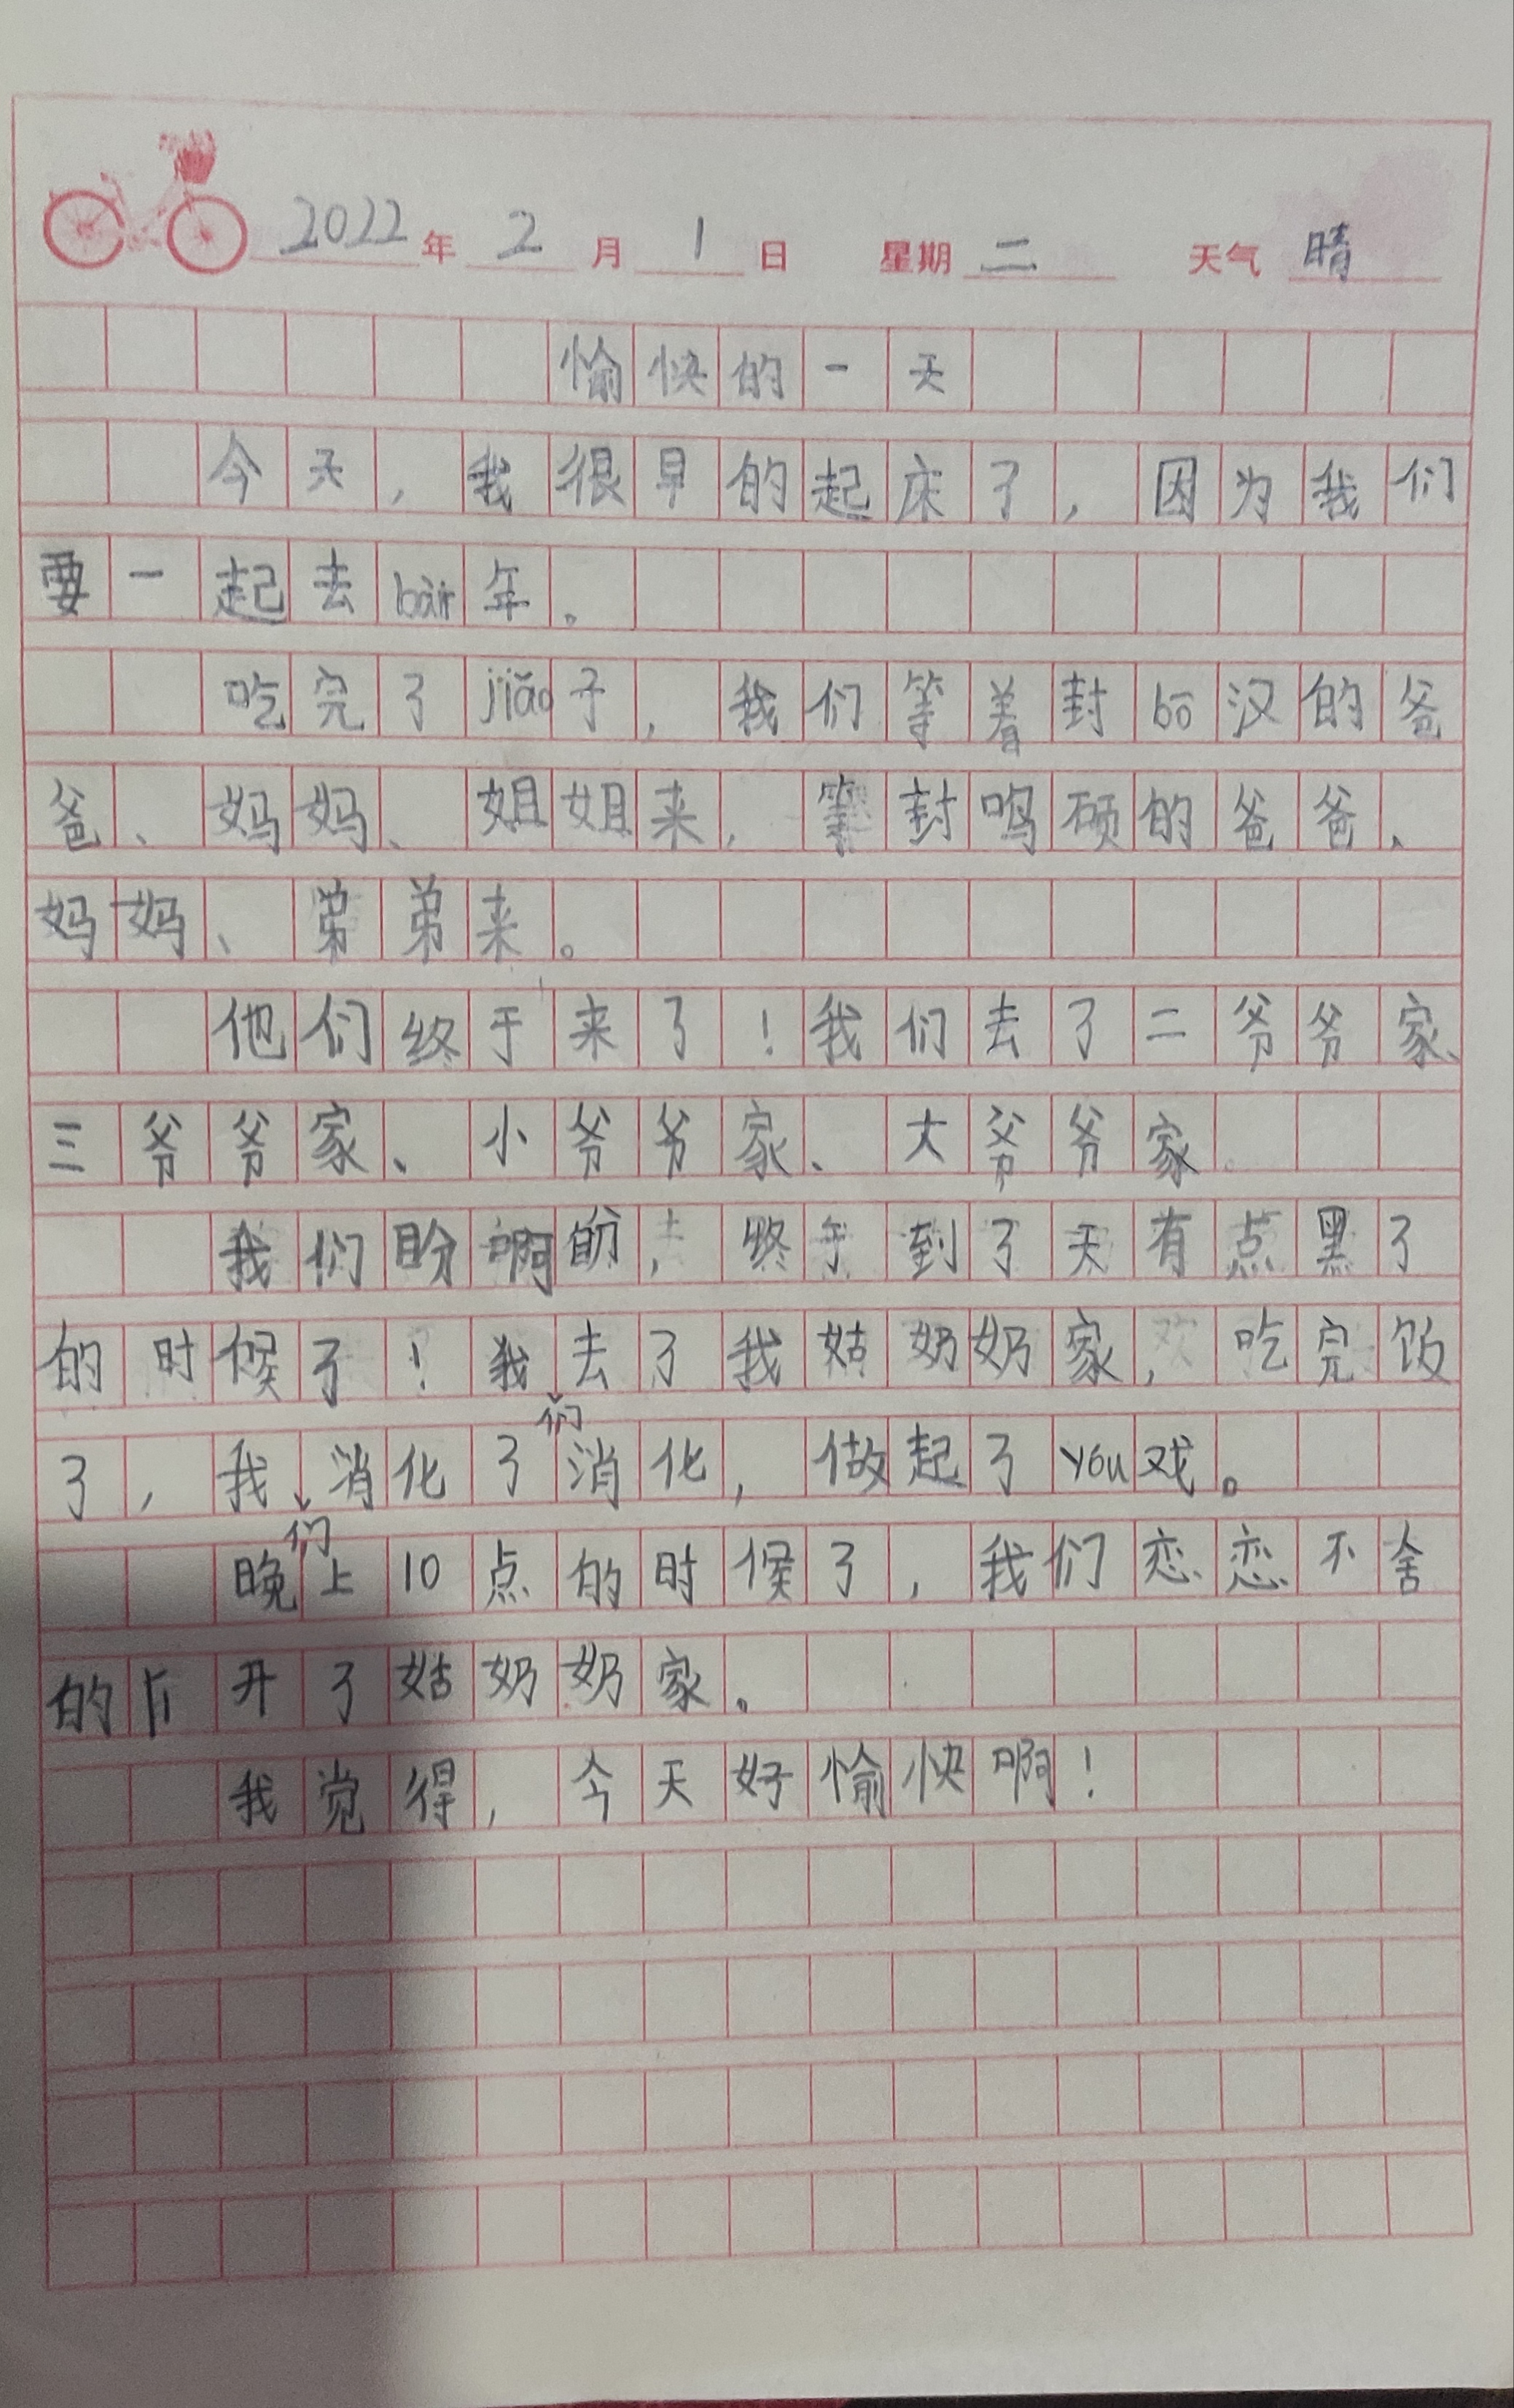 2022年 2 月 1 日 星期 二 天气 晴
愉快的一天
今天,我很早的起床了,因为我们
要一起去bàir年。
吃完了jiǎo子,我们等着封bō汉的爸
爸、妈妈、姐姐来,等封鸣硕的爸爸、
妈妈、弟弟来。
他们终于来了!我们去了二爷爷家、
三爷爷家、小爷爷家、大爷爷家。
我们盼啊盼,终于到了天有点黑了
的时候了!我们去了我姑奶奶家,吃完饭
了,我们消化了消化,做起了yóu戏。
晚上10点的时候了,我们恋恋不舍
的开了姑奶奶家。
我觉得,今天好愉快啊!